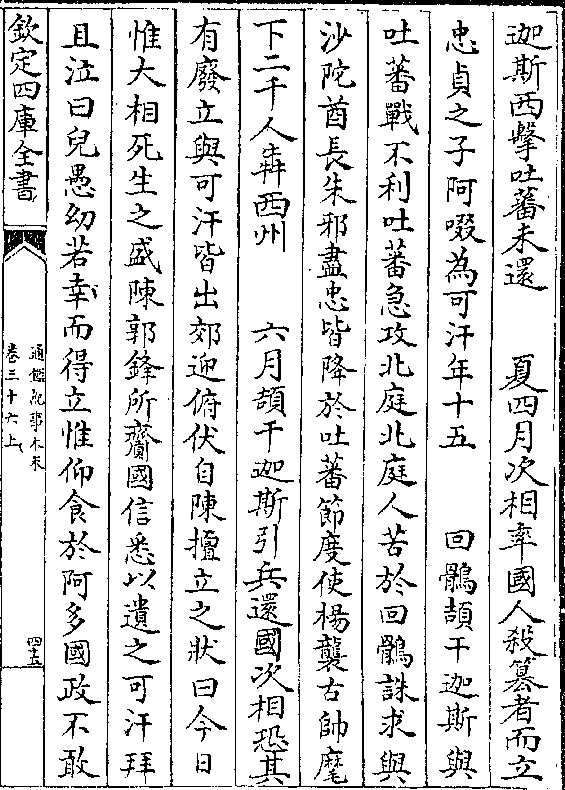 迦斯西擊吐蕃未還　夏四月次相率國人殺篡者而立
忠貞之子阿啜為可汗年十五　回鶻頡干迦斯與
吐蕃戰不利吐蕃急攻北庭北庭人苦於回鶻誅求與
沙陀酋長朱邪盡忠皆降於吐蕃節度使楊襲古帥麾
下二千人犇西州　六月頡干迦斯引兵還國次相恐其
有廢立與可汗皆出郊迎俯伏自陳擅立之狀曰今日
惟大相死生之盛陳郭鋒所齎國信悉以遺之可汗拜
且泣曰兒愚幼若幸而得立惟仰食於阿多國政不敢
欽定四庫全書
通鑑紀事本末
卷三十六上
四十五